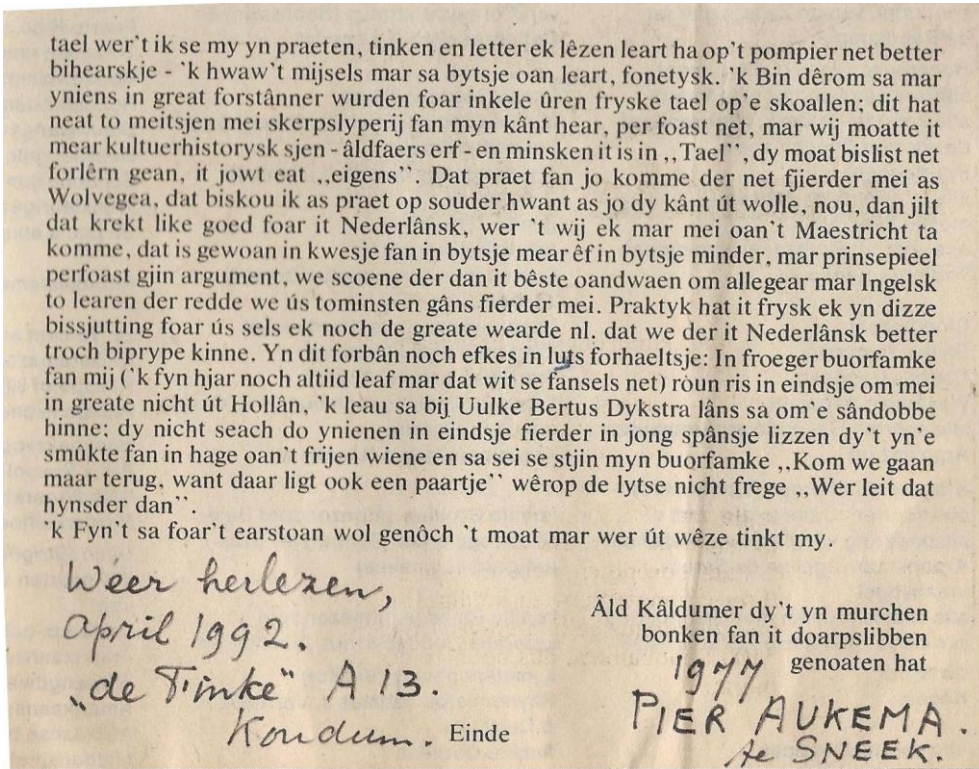 tael wer't ik se my yn praeten, tinken en letter ek lêzen leart ha op't pompier net better
bihearskje - 'k hwaw't mijsels mar sa bytsje oan leart, fonetysk. 'k Bin dêrom sa mar
yniens in great forstânner wurden foar inkele ûren fryske tael op'e skoallen; dit hat
neat to meitsjen mei skerpslyperij fan myn kânt hear, per foast net, mar wij moatte it
mear kultuerhistorysk sjen - âldfaers erf - en minsken it is in ,,Tael", dy moat bislist net
forlêrn gean, it jowt eat ,,eigens". Dat praet fan jo komme der net fjierder mei as
Wolvegea, dat biskou ik as praet op souder hwant as jo dy kânt út wolle, nou, dan jilt
dat krekt like goed foar it Nederlânsk, wer 't wij ek mar mei oan't Maestricht ta
komme, dat is gewoan in kwesje fan in bytsje mear êf in bytsje minder, mar prinsepieel
perfoast gjin argument, we scoene der dan it bêste oandwaen om allegear mar Ingelsk
to learen der redde we ús tominsten gâns fierder mei. Praktyk hat it frysk ek yn dizze
bissjutting foar ús sels ek noch de greate wearde nl. dat we der it Nederlânsk better
troch biprype kinne. Yn dit forbân noch efkes in luts forhaeltsje: In froeger buorfamke
fan mij ('k fyn hjar noch altiid leaf mar dat wit se fansels net) roun ris in eindsje om mei
in greate nicht út Hollân, 'k leau sa bij Uulke Bertus Dykstra lâns sa om'e sândobbe
hinne; dy nicht seach do ynienen in eindsje fierder in jong spânsje lizzen dy't yn'e
smûkte fan in hage oan't frijen wiene en sa sei se stjin myn buorfamke ,,Kom we gaan
maar terug, want daar ligt ook een paartje" wêrop de lytse nicht frege ,,Wer leit dat
hynsder dan".
'k Fyn't sa foar't earstoan wol genôch 't moat mar wer út wêze tinkt my.
Weer herlezen,
april 1992.
"de Finke" A 13.
Koudum.
Einde
Âld Kâldumer dy't yn murchen
bonken fan it doarpslibben
genoaten hat
1977
PIER AUKEMA.
te SNEEK.